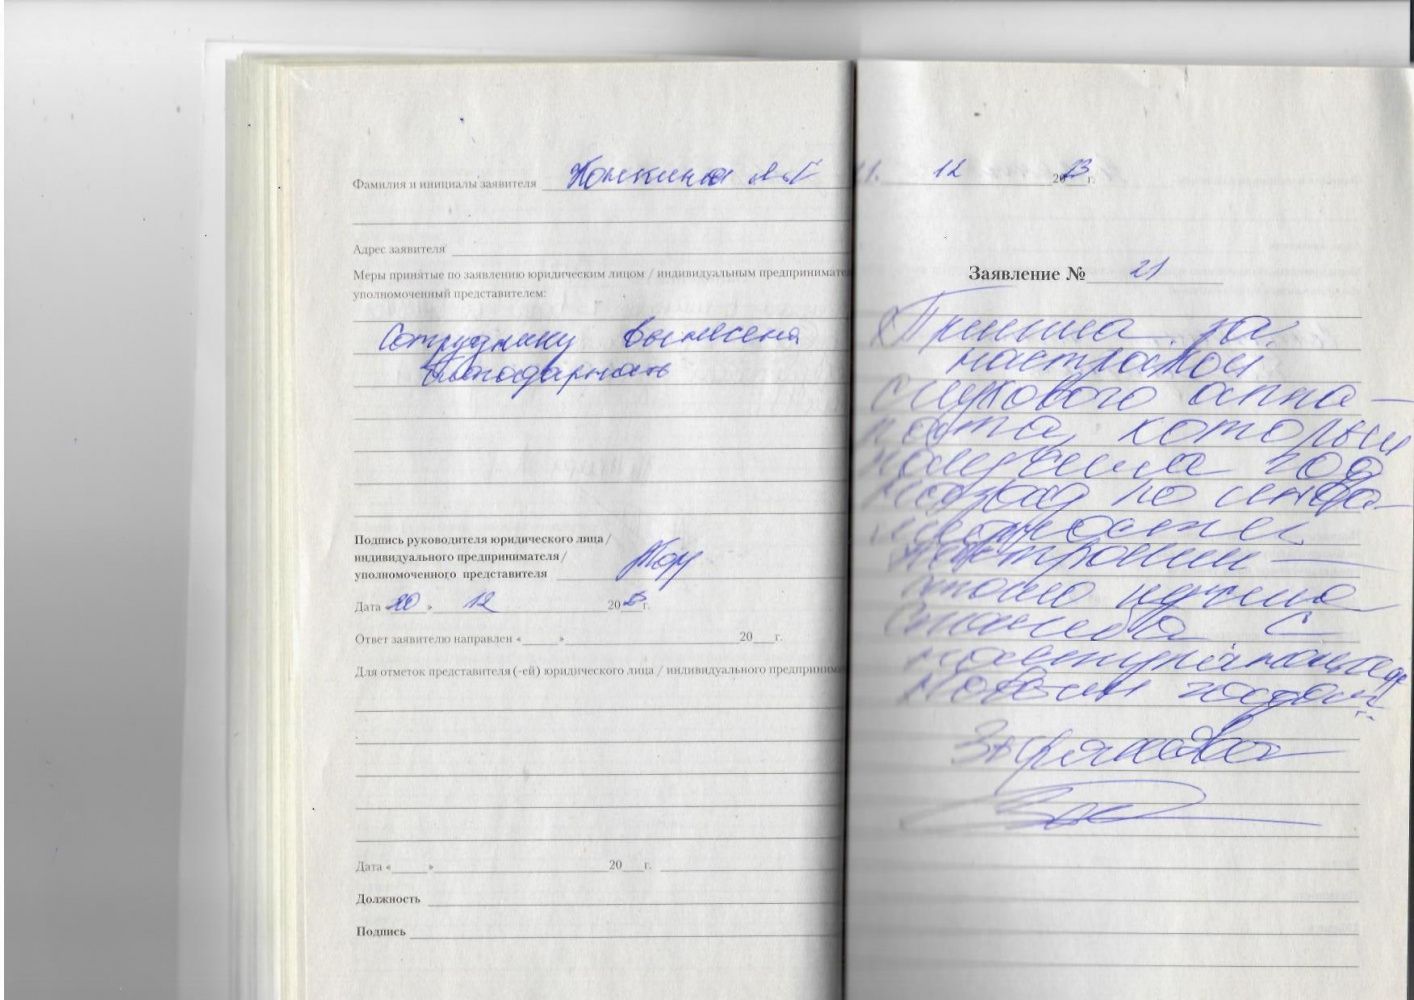 Фамилия и инициалы заявителя
Адрес заявителя
Меры принятые по заявлению юридическим лицом / индивидуальным предпринимате
уполномоченный представителем:
Сотруднику вынесена
благодарность
Подпись руководителя юридического лица /
индивидуального предпринимателя /
уполномоченного представителя
Дата «20 » 12 20 23 г.
Ответ заявителю направлен « » 20 г.
Для отметок представителя (-ей) юридического лица / индивидуального предприним
Дата « » 20 г.
Должность
Подпись
12 2023 г.
Заявление № 21
Пришла за
настройкой
слухового аппа-
рата, который
получила год
назад по инва-
лидности
настроили
нужна
спасибо с
наступающим
новым годом